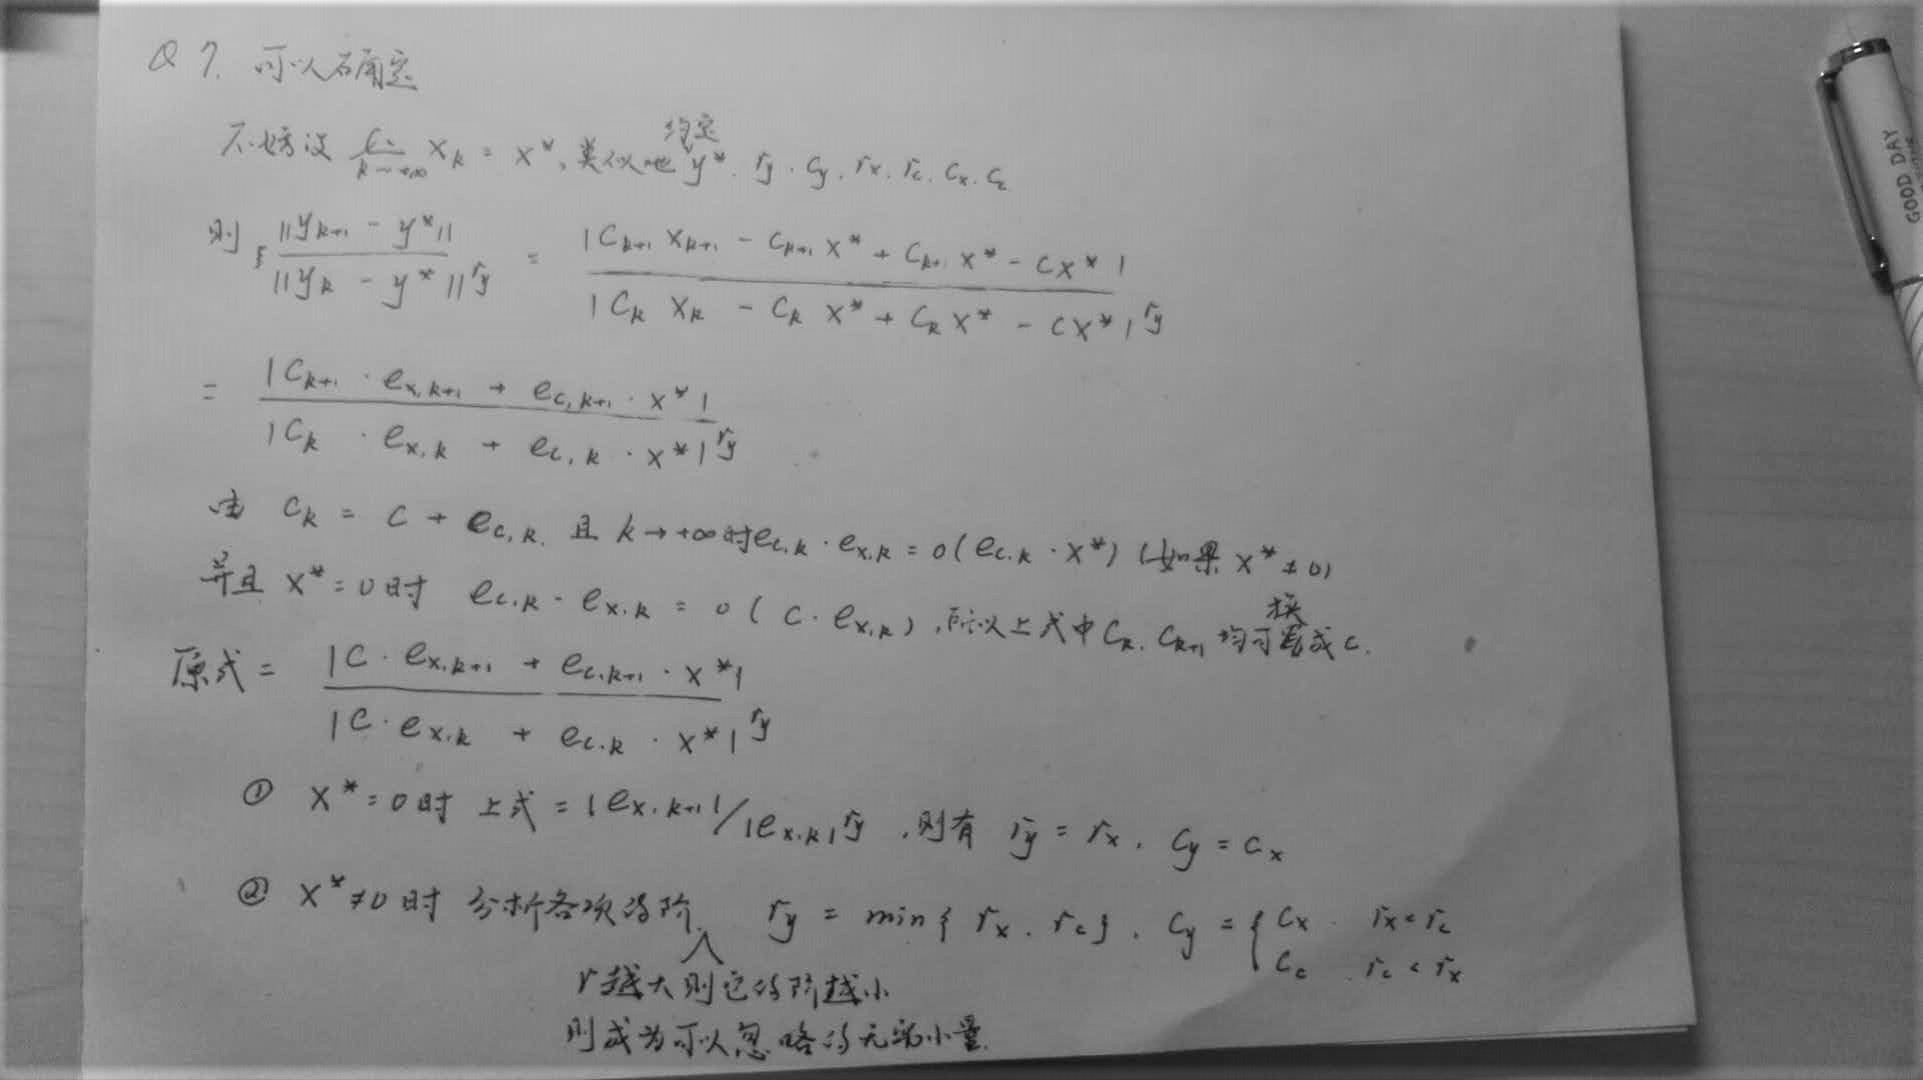 Q7. 可以确定
不妨设 lim_{k→+∞} x_k = x*, 类似地约定 y*. r_y. c_y. r_x. r_c. c_x. c_c
则 ||y_{k+1} - y*|| / ||y_k - y*||^{r_y} = |c_{k+1} x_{k+1} - c_{k+1} x* + c_{k+1} x* - c x*| / |c_k x_k - c_k x* + c_k x* - c x*|^{r_y}
= |c_{k+1} · e_{x,k+1} + e_{c,k+1} · x*| / |c_k · e_{x,k} + e_{c,k} · x*|^{r_y}
由 c_k = c + e_{c,k}. 且 k→+∞时 e_{c,k} · e_{x,k} = o(e_{c,k} · x*) (如果 x* ≠ 0)
并且 x* = 0时 e_{c,k} · e_{x,k} = o(c · e_{x,k}), 所以上式中 c_k. c_{k+1} 均可换成 c.
原式 = |c · e_{x,k+1} + e_{c,k+1} · x*| / |c · e_{x,k} + e_{c,k} · x*|^{r_y}
① x* = 0时 上式 = |e_{x,k+1}| / |e_{x,k}|^{r_y}, 则有 r_y = r_x, c_y = c_x
② x* ≠ 0时 分析各项的阶, r_y = min{r_x, r_c}, c_y = { c_x, r_x < r_c
c_c, r_c < r_x
r越大则它的阶越小
则成为可以忽略的无穷小量.
GOOD DAY